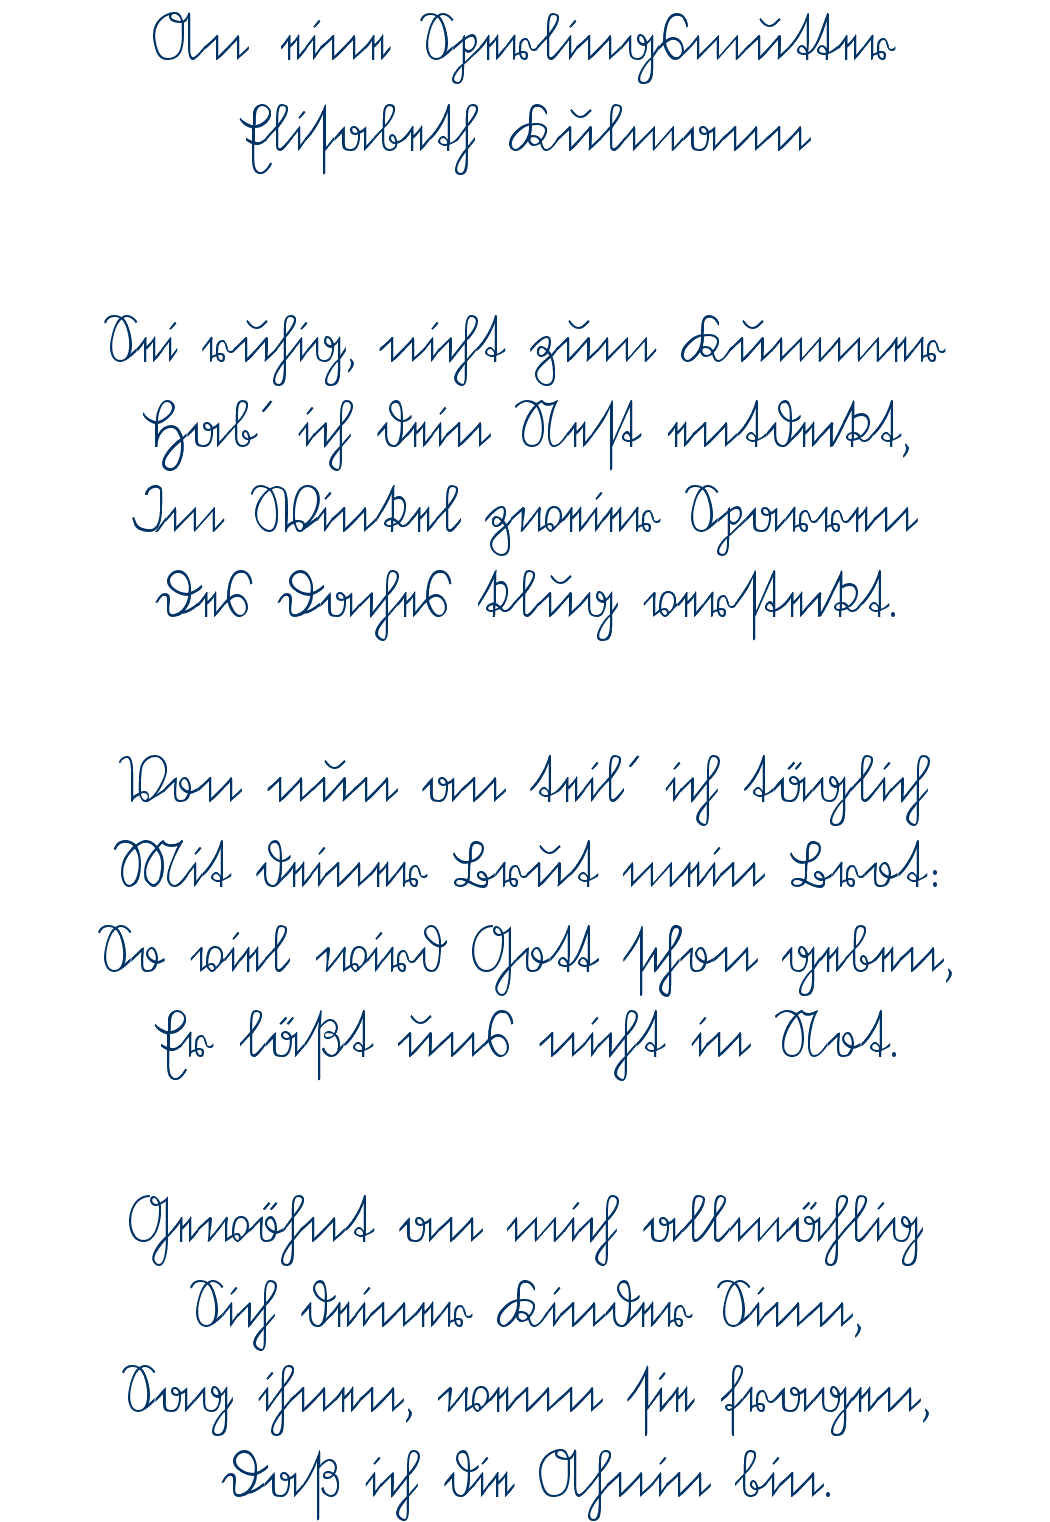 An eine Sperlingsmutter
Elisabeth Kulmann
Sei ruhig, nicht zum Kummer
Hab´ ich dein Nest entdeckt,
Im Winkel zweier Sparren
Des Daches klug versteckt.
Von nun an teil´ ich täglich
Mit deiner Brut mein Brot:
So viel wird Gott schon geben,
Er läßt uns nicht in Not.
Gewöhnt an mich allmählig
Sich deiner Kinder Sinn,
Sag ihnen, wenn sie fragen,
Daß ich die Ahnin bin.